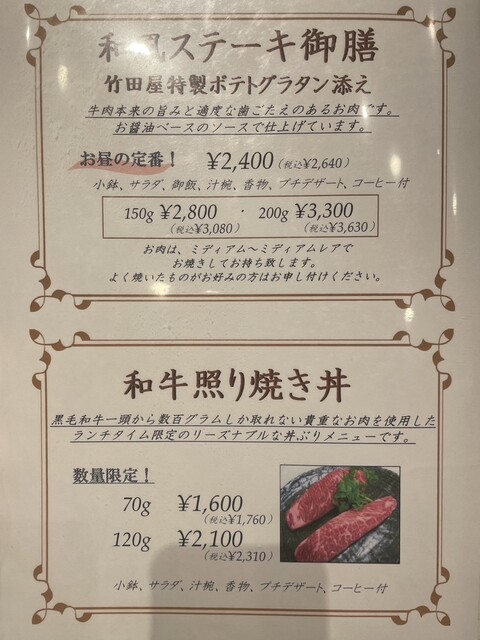 和風ステーキ御膳
竹田屋特製ポテトグラタン添え
牛肉本来の旨みと適度な歯ごたえのあるお肉です。
お醤油ベースのソースで仕上げています。
お昼の定番！ ¥2,400(税込¥2,640)
小鉢、サラダ、御飯、汁椀、香物、プチデザート、コーヒー付
150g ¥2,800 ・ 200g ¥3,300
(税込¥3,080) (税込¥3,630)
お肉は、ミディアム～ミディアムレアで
お焼きしてお持ち致します。
よく焼いたものがお好みの方はお申し付けください。
和牛照り焼き丼
黒毛和牛一頭から数百グラムしか取れない貴重なお肉を使用した
ランチタイム限定のリーズナブルな丼ぶりメニューです。
数量限定！
70g ¥1,600
(税込¥1,760)
120g ¥2,100
(税込¥2,310)
小鉢、サラダ、汁椀、香物、プチデザート、コーヒー付